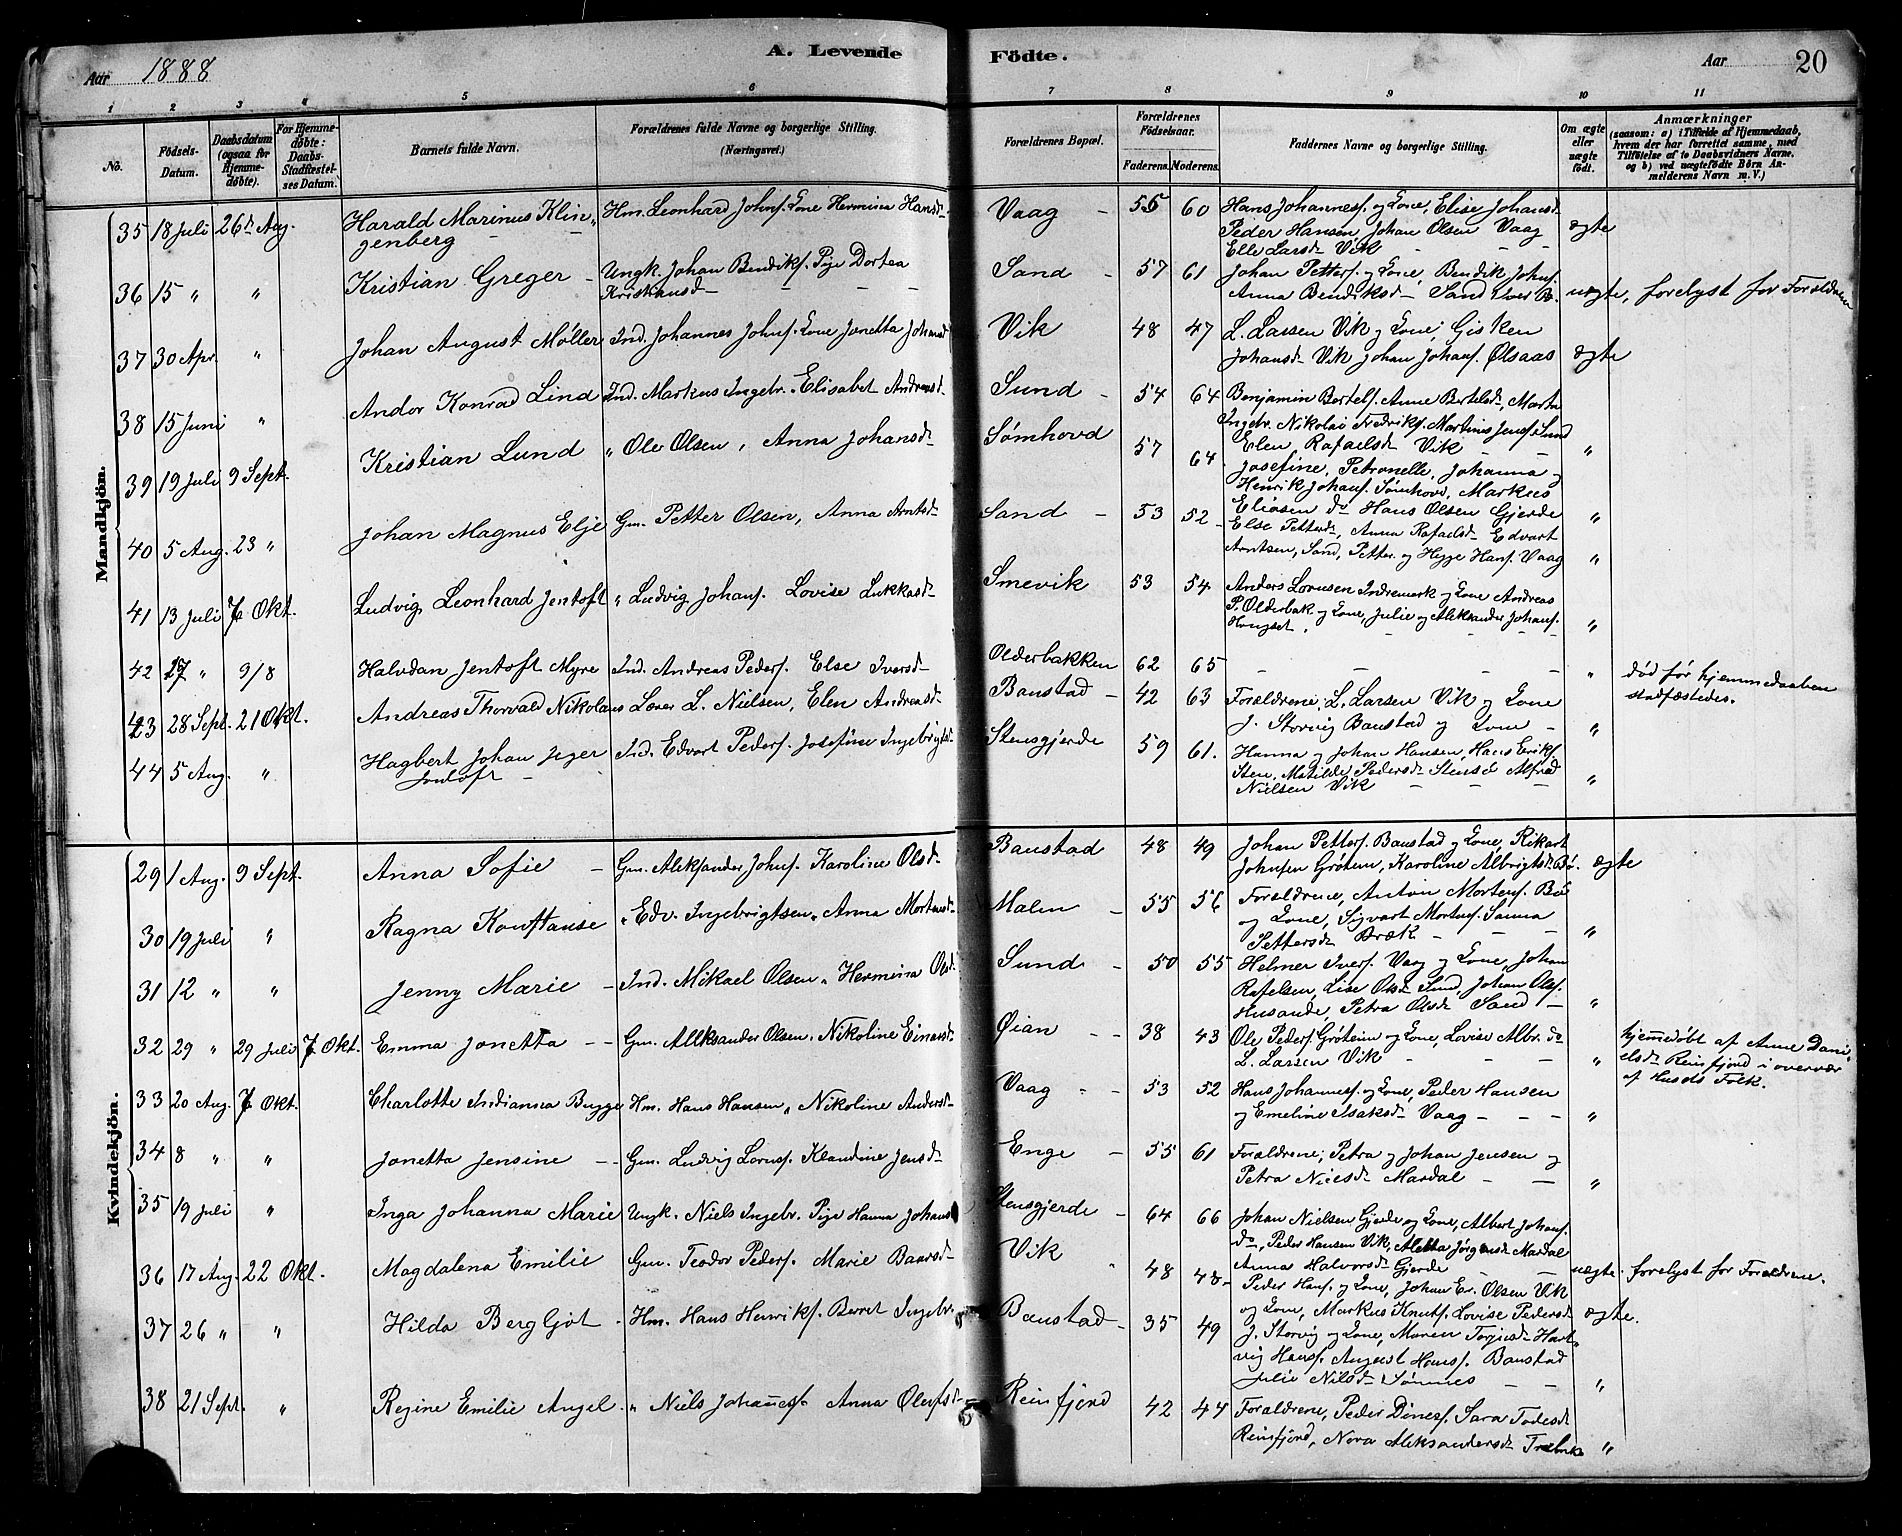 Aar 1888
A. Levende Födte.
Aar 20
1 2 3 4 5 6 7 8 9 10 11
No.
Födsels-Datum.
Daabsdatum (ogsaa for Hjemmedøbte).
For Hjemmedøbte: Daabs-Stadfæstelses Datum.
Barnets fulde Navn.
Forældrenes fulde Navne og borgerlige Stilling. (Næringsvei.)
Forældrenes Bopæl.
Forældrenes Födselsaar.
Faderens. Moderens.
Faddernes Navne og borgerlige Stilling.
Om ægte eller uægte födt.
Anmærkninger
(saasom: a) i Tilfælde af Hjemmedaab, hvem der har forrettet samme, med Tilföielse af to Daabsvidners Navne, og b) ved uægtefödte Börn Anmelderens Navn m. V.)
Mandkjön.
35 18 Juli 26de Aug. Harald Marinus Klingenberg Hm. Leonhard Johns. Kone Hermina Hansd. Vaag 55 60 Hans Johanness. og Kone, Elise Johansd.
Peder Hansen Johan Olsen Vaag ægte
Elle Larsd. Vik
36 15 " " Kristian Greger Ungk. Johan Bendiks. Pige Dortea Kristiansd. Sand 57 61 Johan Petters. og Kone, Bendik Johns.
Anna Bendiksd. Sand Iver B. uægte, forelyst for Forældrene
37 30 Apr. " Johan August Møller Ind. Johannes Johns. Kone Jonetta Johansd. Vik 48 47 L. Lassen Vik og Kone, Gisken
Johansd. Vik Johan Johans. Ølsaas ægte
38 15 Juni " Andor Konrad Lind Ind. Markus Ingebr. Elisabet Andreasd. Sund 54 64 Benjamin Bertels. Anne Bertelsd., Marta
Ingebr. Nikolai Fredriks. Martinus Jens. Sund
Elen Rafaelsd. Vik "
39 19 Juli 9 Sept. Kristian Lund " Ole Olsen, Anna Johansd. Sømhovd 57 64 Josefine, Petronelle, Johanna og
Henrik Johans. Sømhovd, Markus
Eliasen do Hans Olsen Gjerde "
40 5 Aug. 23 " Johan Magnus Elje Gm. Petter Olsen, Anna Arntsd. Sand 53 52 Else Pettersd., Anna Rafaelsd. Edvart
Arntsen, Sand, Petter og Hegge Hans. Vaag "
41 13 Juli 7 Okt. Ludvig Leonhard Jentoft " Ludvig Johans. Lovise Lukkasd. Smevik 53 54 Anders Lorensen Indremark og Kone Andreas
P. Olderbak. og Kone, Julie og Aleksander Johans. "
42 27 " 9/8 Halvdan Jentoft Myre Ind. Andreas Peders. Else Iversd. Olderbakken 62 65 " død før hjemmedaaben stadfæstedes.
43 28 Sept. 21 Okt. Andreas Thorvald Nikolaus Lærer L. Nielsen, Elen Andreasd. Baustad 42 63 Forældrene, L. Larsen Vik og Kone
J. Storvig Baustad og Kone "
44 5 Aug. " Hagbert Johan Jeger Jentoft Ind. Edvart Peders. Josefine Ingebrigtsd. Stensgjerde 59 61. Hanna og Johan Hansen, Hans Eriks.
Sten, Matilde Pedersd. Stensø Alfred
Nielsen Vik "
Kvindekjön.
29 1 Aug. 9 Sept. Anna Sofie Gm. Aleksander Johns. Karoline Olsd. Baustad 48 49 Johan Petters. Baustad og Kone, Rikart
Johnsen Grøtem, Karoline Albrigtsd. Bø. ægte
30 19 Juli " Ragna Konstanse " Edv. Ingebrigtsen " Anna Mortensd. Malen 55 56 Forældrene, Anton Mortens. Bø
og Kone, Sigvart Mortens. Sanna
Pettersd. Bræk "
31 12 " " Jenny Marie Ind. Mikael Olsen " Hermina Olsd. Sund 50 55 Helmer Ivers. Vaag og Kone, Johan
Rafelsen, Lise Olsd. Sund, Johan Ols.
Husande, Petra Olsd. Sand "
32 29 " 29 Juli 7 Okt. Emma Jonetta Gm. Alleksander Olsen, Nikoline Einersd. Øian 38 43 Ole Peders. Grøteim og Kone, Lovise Albr. do
L. Lassen Vik " hjemmedøbt af Anne Danielsd. Reinsfjord i overvær af Husets Folk.
33 20 Aug. 7 Okt. Charlotte Indianna Bugge Hm. Hans Hansen " Nikoline Andersd. Vaag 53 52 Hans Johanness. og Kone, Peder Hansen
og Emeline Isaksd. Vaag "
34 8 " " Jonetta Jensine Gm. Ludvig Lorns. Klaudine Jensd. Enge 55 61 Forældrene, Petra og Johan Jensen og
Petra Nielsd. Mardal "
35 19 Juli " Inga Johanna Marie Ungk. Niels Ingebr. Pige Hanna Johansd. Stensgjerde 64 66 Johan Nielsen Gjerde og Kone, Albert Johans.
do, Peder Hansen Vik, Aletta Jørgensd. Mardal
Anna Halvorsd. Gjerde uægte. forelyst for Forældrene.
36 17 Aug. 22 Okt. Magdalena Emilie Gm. Teodor Peders. Marie Baarsd. Vik 48 48 Peder Hans. og Kone, Johan Er. Olsen Vik
og Kone, Markus Knuts. Lovise Pedersd. ægte.
37 26 " " Hilda Bergljot Hm. Hans Henriks. Berret Ingebr. Baustad 35 49 J. Storvig og Kone, Maren Torjesd. Hartvig
Hans. August Hans. Baustad
Julie Nilsd. Sømnes "
38 21 Sept. " Regine Emilie Angel " Niels Johanness. Anna Olufsd. Reinsfjord 42 44 Forældrene, Peder Dines. Sara Todesd.
Reinsfjord, Nora Aleksandersd. "